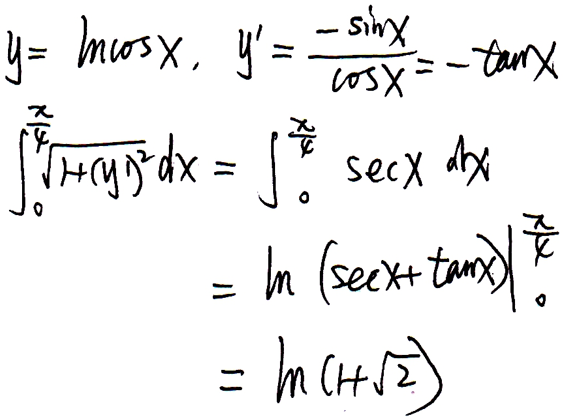 y = ln cos x, y' = \frac{-sin x}{cos x} = -tan x
\int_0^{\frac{π}{4}} \sqrt{1+(y')^2} dx = \int_0^{\frac{π}{4}} sec x dx
= ln (sec x + tan x) |_0^{\frac{π}{4}}
= ln (1+\sqrt{2})